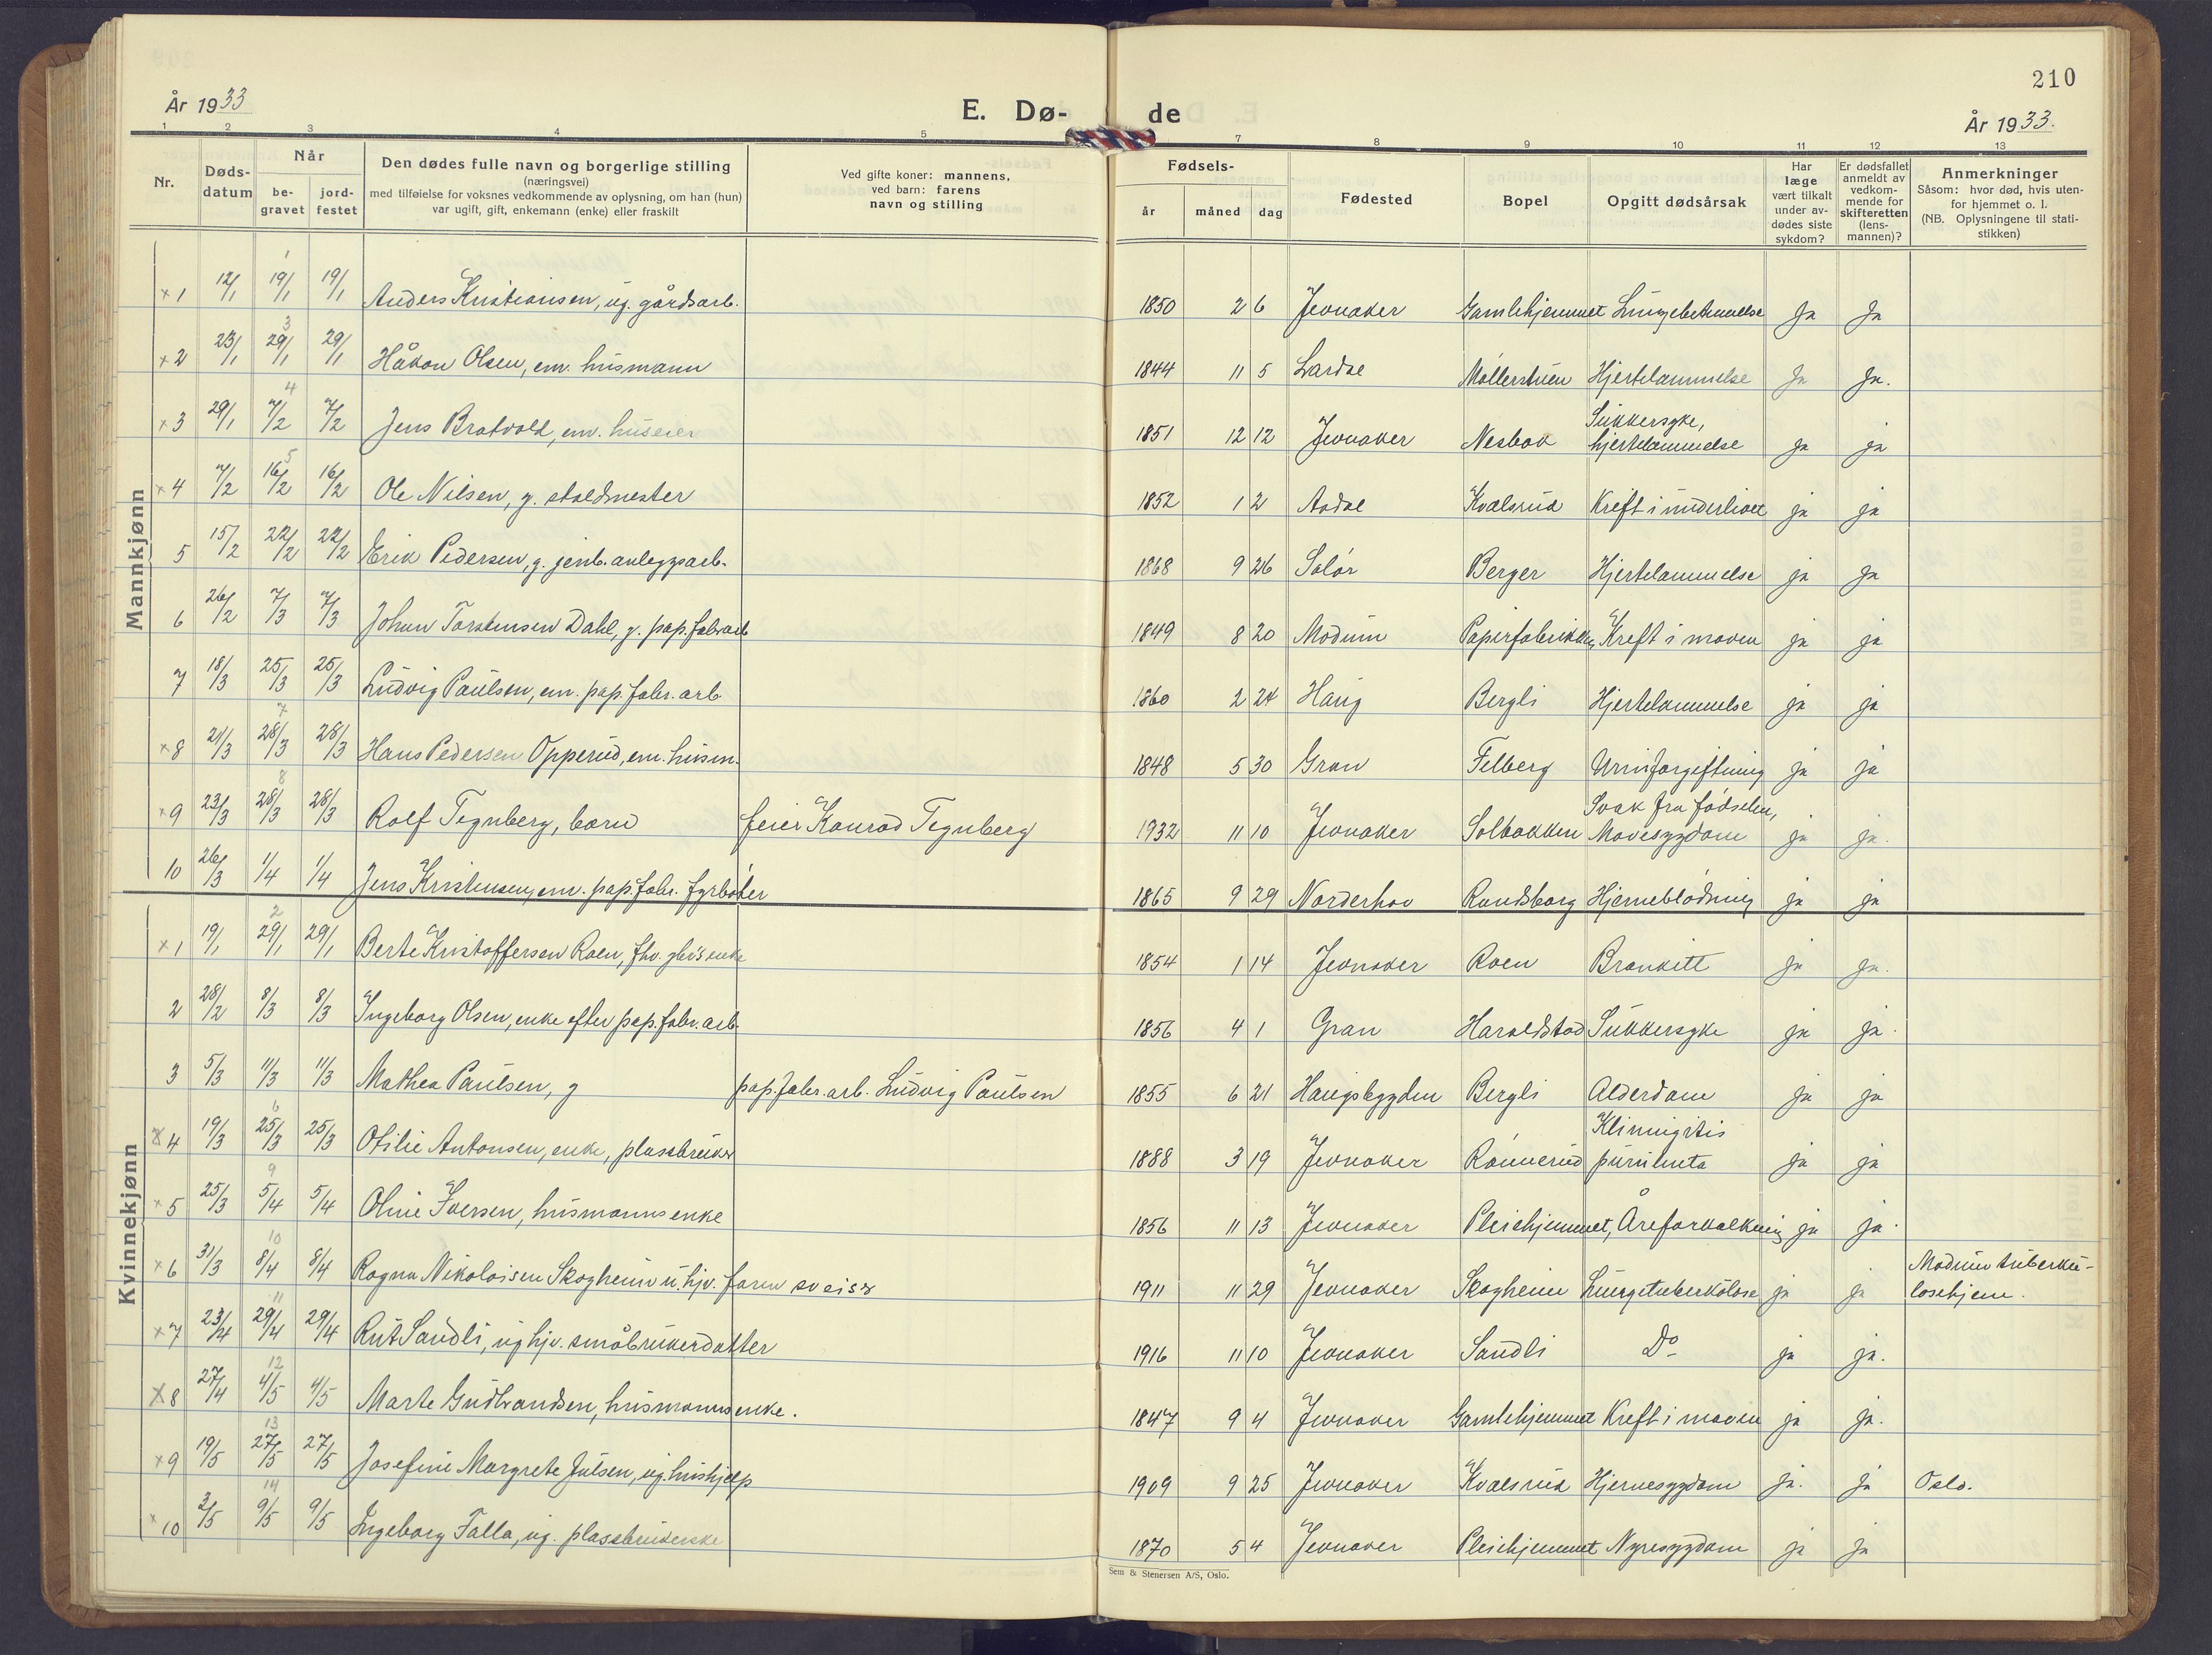 210
År 1933
E. Dø-de
År 1933.
1 2 3 4 5 7 8 9 10 11 12 13
Nr.
Døds-datum
Når
be-gravet
jord-festet
Den dødes fulle navn og borgerlige stilling
(næringsvei)
med tilføielse for voksnes vedkommende av oplysning, om han (hun)
var ugift, gift, enkemann (enke) eller fraskilt
Ved gifte koner: mannens,
ved barn: farens
navn og stilling
Fødsels-
år måned dag
Fødested
Bopel
Opgitt dødsårsak
Har læge vært tilkalt under av-dødes siste sykdom?
Er dødsfallet anmeldt av vedkom-mende for skifteretten (lens-mannen)?
Anmerkninger
Såsom: hvor død, hvis uten-
for hjemmet o. l.
(NB. Oplysningene til stati-
stikken)
Mannkjønn
1
×1 12/1 19/1 19/1 Anders Kristiansen, ug. gårdsarb. 1850 2 6 Jevnaker Gamlehjemmet Lungebetennelse Ja Ja
3
×2 23/1 29/1 29/1 Håkon Olsen, em. husmann 1844 11 5 Lardal Møllerstuen Hjertelammelse Ja Ja.
4
×3 29/1 7/2 7/2 Jens Bratvold, em. huseier 1851 12 12 Jevnaker Nesbak Sukkersyke, hjertelammelse ja ja
5
×4 7/2 16/2 16/2 Ole Nilsen, g. staldmester 1852 1 2 Aadal Kvalsrud Kreft i underlivet ja ja
5 15/2 22/2 22/2 Erik Pedersen, g. jernb. anleggsarb. 1868 9 26 Solør Berger Hjertelammelse ja ja
6 26/2 7/3 7/3 Johan Torstensen Dahl, g. pap.fabrarb 1849 8 20 Modum Papirfabrikken Kreft i maven ja ja
7 18/3 25/3 25/3 Ludvig Paulsen, em. pap.fabr.arb 1860 2 24 Haug Bergli Hjertelammelse ja ja
7
×8 21/3 28/3 28/3 Hans Pedersen Opperud, em. husm. 1848 5 30 Gran Felberg Urinforgiftning ja ja
8
×9 23/3 28/3 28/3 Rolf Tegnberg, barn feier Konrad Tegnberg 1932 11 10 Jevnaker Solbakken Svak fra fødselen, Mavesygdom ja ja.
10 26/3 1/4 1/4 Jens Kristensen, em. pap.fabr. fyrbøter 1865 9 29 Norderhov Randsborg Hjerneblødning ja ja
Kvinnekjønn
2
×1 19/1 29/1 29/1 Berte Kristoffersen Roen, fhv. gbr's enke 1854 1 14 Jevnaker Roen Bronkitt ja ja.
2 28/2 8/3 8/3 Ingeborg Olsen, enke efter pap.fabr.arb. 1856 4 1 Gran Haraldstad Sukkersyke ja ja.
3 5/3 11/3 11/3 Mathea Paulsen, g pap.fabr.arb. Ludvig Paulsen 1855 6 21 Haugsbygden Bergli Alderdom ja ja
6
×4 19/3 25/3 25/3 Otilie Antonsen, enke, plassbruker 1888 3 19 Jevnaker Rønnerud purulenta ja ja
9
×5 25/3 5/4 5/4 Oline Iversen, husmannsenke 1856 11 13 Jevnaker Pleiehjemmet, Åreforkalkning ja ja.
10
×6 31/3 8/4 8/4 Ragna Nikolaisen Skogheim u. hjv. faren sveiser 1911 11 29 Jevnaker Skogheim Lungetuberkolose ja ja Modum tuberku-losehjem.
11
×7 23/4 29/4 29/4 Rut Sandli, ug hjv. småbrukerdatter 1916 11 10 Jevnaker Sandli Do ja ja.
12
×8 27/4 4/5 4/5 Marte Gudbrandsen, husmannsenke. 1847 9 4 Jevnaker Gamlehjemmet Kreft i maven ja ja.
13
×9 19/5 27/5 27/5 Josefine Margrete Julsen, ug. hushjelp 1909 9 25 Jevnaker Kvalsrud Hjernesygdom ja. ja Oslo.
14
×10 3/5 9/5 9/5 Ingeborg Falla, ug. plassbrukerske 1870 5 4 Jevnaker Pleiehjemmet Nyresygdom ja ja
Sem & Stenersen A/S, Oslo.